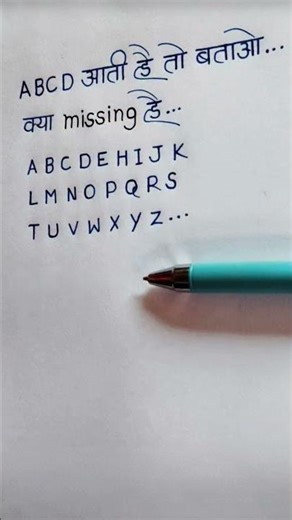 ABCD आती है तो बताओ...
क्या missing है...
A B C D E H I J K
L M N O P Q R S
T U V W X Y Z...